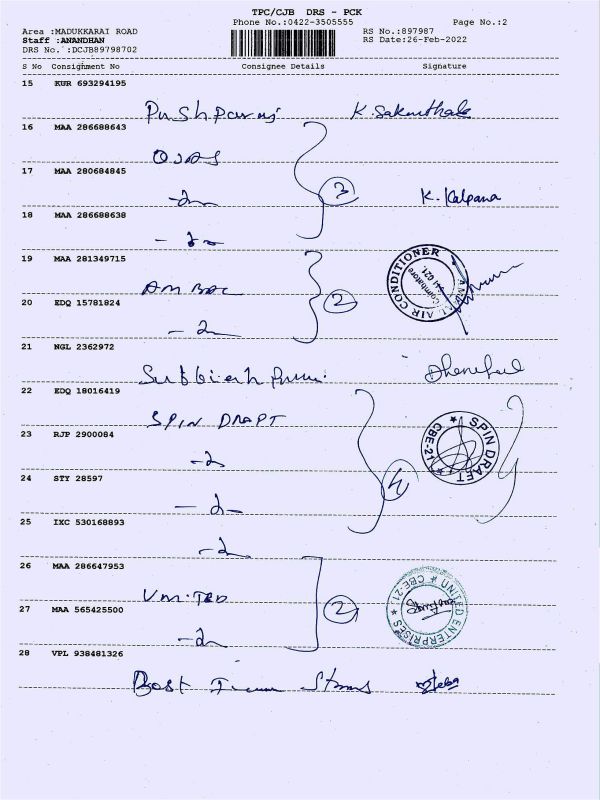 TPC/CJB DRS - PCK
Phone No.:0422-3505555
Page No.:2
Area :MADUKKARAI ROAD
Staff :ANANDHAN
DRS No. :DCJB89798702
RS No.:897987
RS Date:26-Feb-2022
S No Consignment No Consignee Details Signature
15 KUR 693294195
Pushparaj K. Sakunthala
16 MAA 286688643
OJAS
17 MAA 280684845
3 K. Kalpana
18 MAA 286688638
19 MAA 281349715
AIR CONDITIONER
Coimbatore
20 EDQ 15781824
2
21 NGL 2362972
22 EDQ 18016419
SPIN DRAFT
23 RJP 2900084
★ SPIN DRAFT ★ CBE-21
24 STY 28597
4
25 IXC 530168893
26 MAA 286647953
UNITED
27 MAA 565425500
2
★ UNITED ENTERPRISES ★ CBE-21
28 VPL 938481326
Best